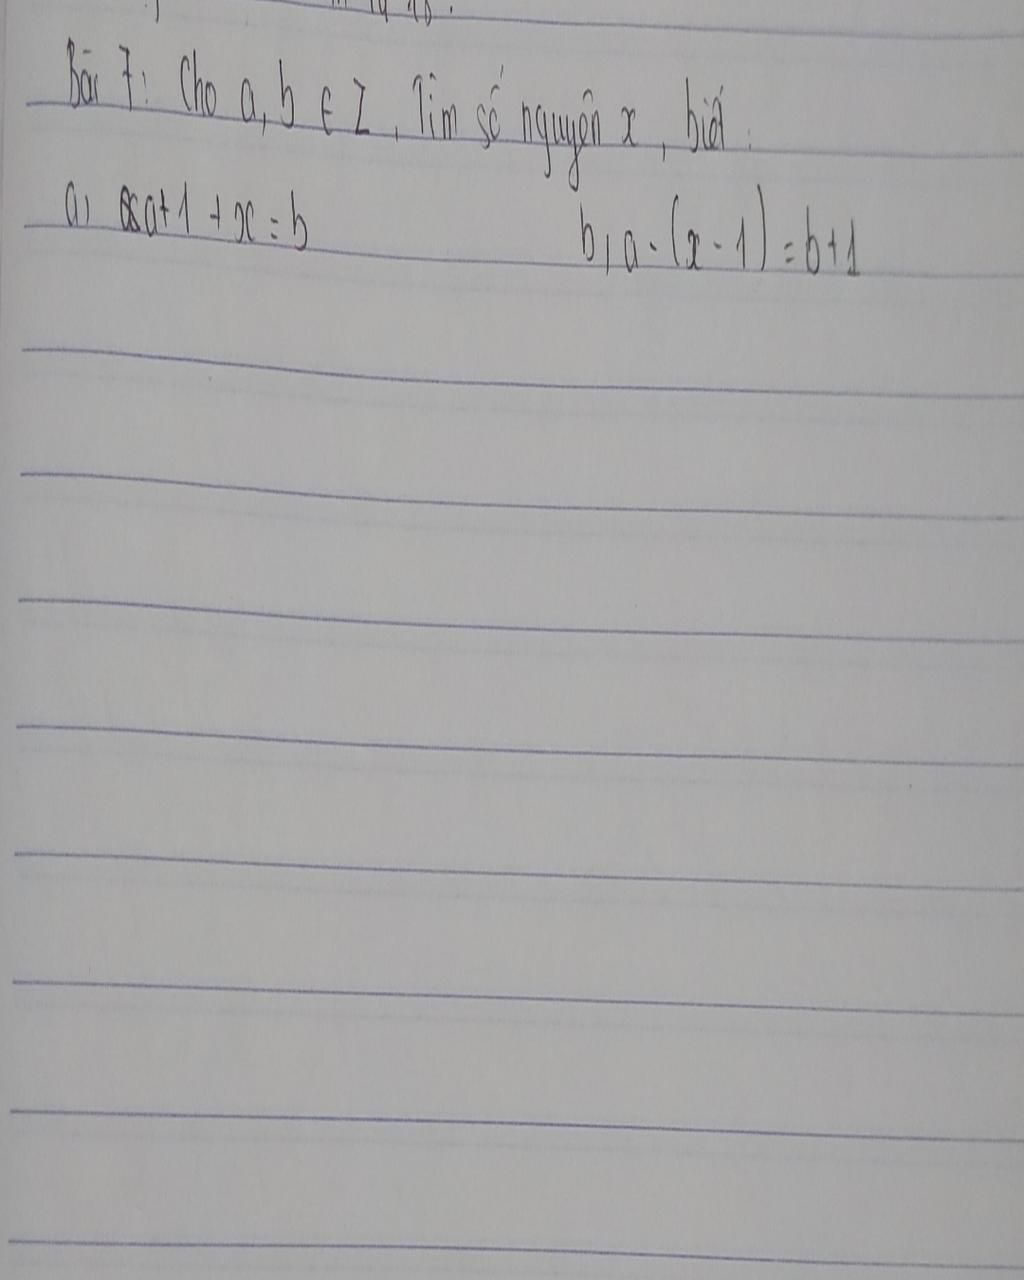 Bài 7: Cho a, b ∈ Z, Tìm số nguyên x, biết:
a, a+1+x=b b, a-(x-1)=b+1